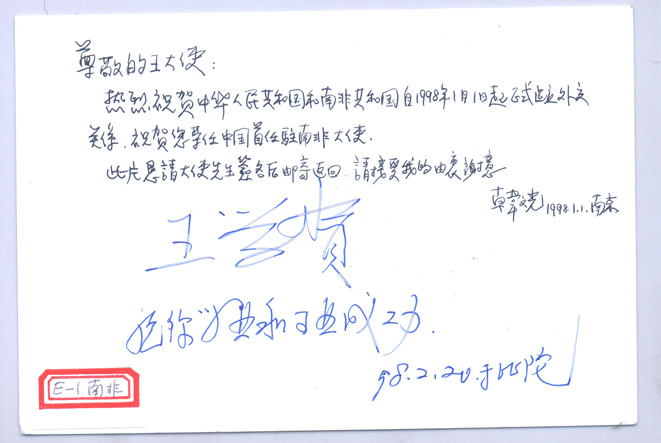 尊敬的王大使:
热烈祝贺中华人民共和国和南非共和国自1998年1月1日起正式建立外交
关系.祝贺您荣任中国首任驻南非大使.
此片恳請大使先生簽名后邮寄返回.請接受我的由衷謝意
1998.1.1.南京
王学贤
祝你 成功.
98.2.20.于比陀
E-1南非